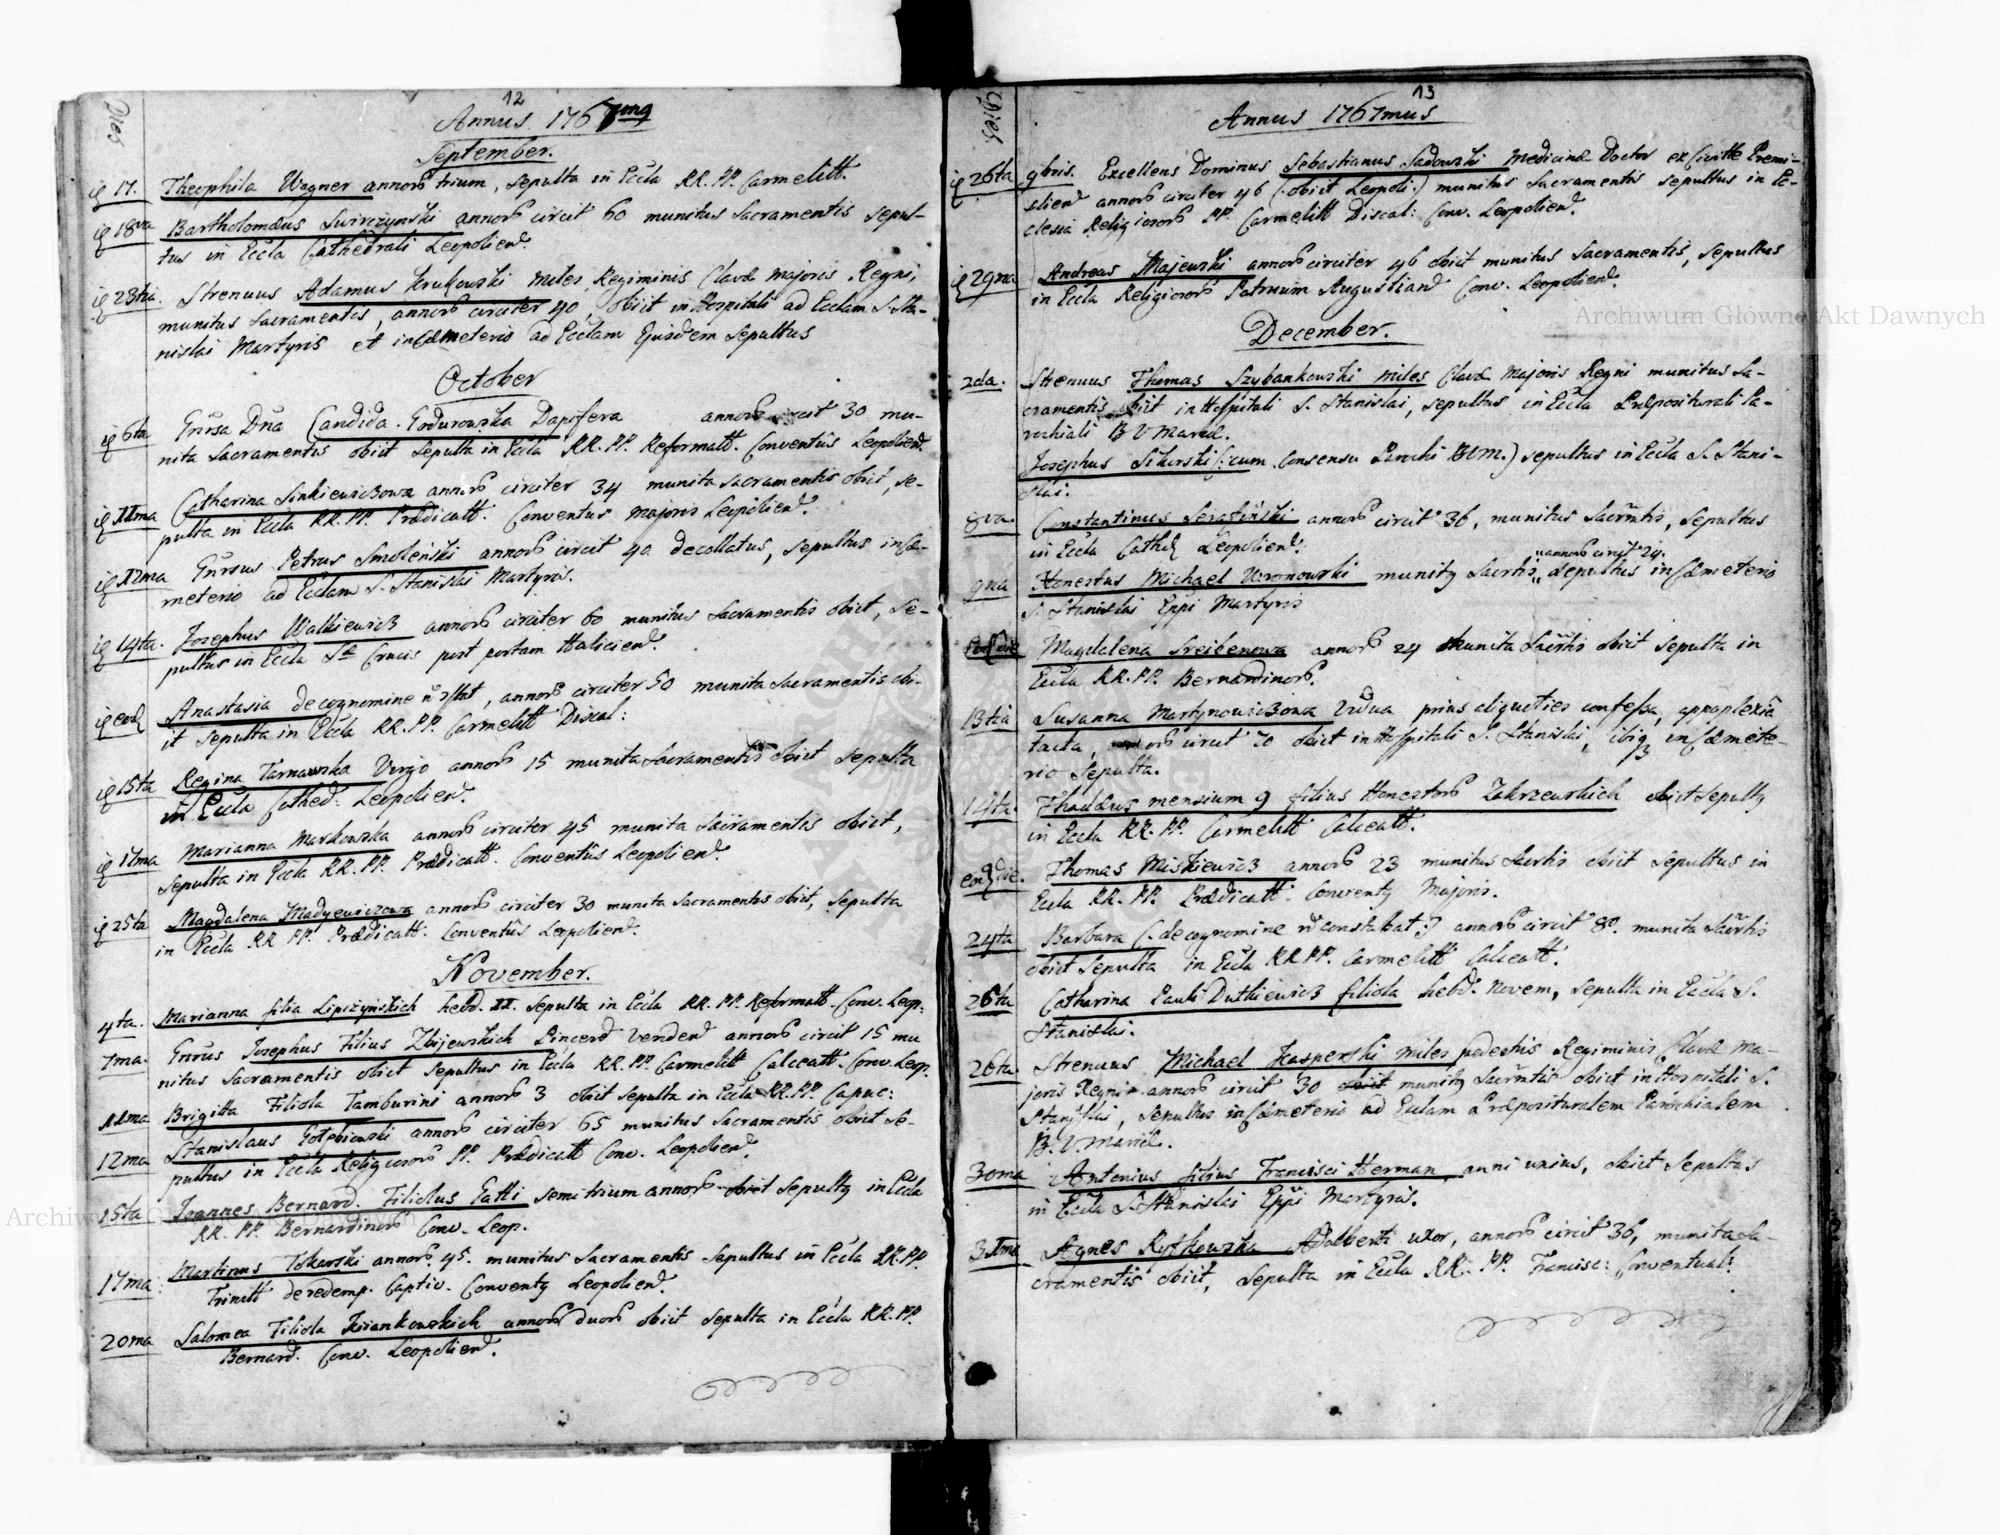 12
Dies
Annus 1767mq
September.
17. Theophila Wagner annorum trium, sepulta in Eccla RR. PP. Carmelitt.
18va Bartholomæus Swirczynski annorum circit 60 munitus Sacramentis sepul-
tus in Eccla Cathedrali Leopoliens.
23tia. Strenuus Adamus Krukowski Miles Regiminis Clavæ Majoris Regni,
munitus Sacramentis, annorum circiter 40, obiit in Hospitali ad Ecclam S. Sta-
nislai Martyris et in Cæmeterio ad Ecclam Ejusdem Sepultus
October
6ta Gnrsa Dna Candida Godurowska Dapifera annorum circit 30 mu-
nita Sacramentis obiit Sepulta in Eccla RR. PP. Reformatt. Conventûs Leopoliens.
11ma Catharina Sinkiewiczowa annorum circiter 34 munita Sacramentis obiit, se-
pulta in Eccla RR. PP. Prædicatt. Conventus Majoris Leopoliens.
12ma Gnrsus Petrus Smoleński annorum circit 40 decollatus, sepultus in Cæ-
meterio ad Ecclam S. Stanislai Martyris.
14ta. Josephus Walkiewicz annorum circiter 60 munitus Sacramentis obiit, Se-
pultus in Eccla Sæ Crucis post portam Haliciens.
eod Anastasia de cognomine constat, annorum circiter 50 munita Sacramentis obi-
it sepulta in Eccla RR. PP. Carmelitt Discal:
15ta Regina Tarnawska Virgo annorum 15 munita Sacramentis obiit sepulta
in Eccla Cathed: Leopoliens.
17ma Marianna Markowska annorum circiter 45 munita Sacramentis obiit,
Sepulta in Eccla RR. PP. Prædicatt. Conventûs Leopoliens.
25ta Magdalena Madyewiczowa annorum circiter 30 munita Sacramentis obiit, Sepulta
in Eccla RR PP. Prædicatt. Conventûs Leopoliens.
November.
4ta. Marianna filia Lipczynskich hebd. II. Sepulta in Eccla RR. PP. Reformatt. Conv. Leop:
7ma. Gnrus Josephus Filius Zbijewskich Pincern Venden annorum circit 15 mu
nitus Sacramentis obiit sepultus in Eccla RR. PP. Carmelitt Calceatt. Conv. Leop.
11ma Brigitta Filiola Tamburini annorum 3 obiit Sepulta in Eccla RR. PP. Capuc:
12ma Stanislaus Gołębiowski annorum circiter 65 munitus Sacramentis obiit Se-
pultus in Eccla Religiosorum PP. Prædicatt Conv. Leopoliens.
15ta Joannes Bernard. Filiolus Gatti semitrium annorum obiit Sepultq in Eccla
RR. PP. Bernardinorum Conv. Leop.
17ma. Martinus Tokarski annorum 45. munitus Sacramentis Sepultus in Eccla RR. PP.
Trinitt de redemp. Captiv. Conventq Leopoliens.
20ma Salomea Filiola Kriankowskich annorum duorum obiit sepulta in Eccla RR. PP.
Bernard. Conv. Leopoliens.
13
Dies
Annus 1767mus
26ta 9bris. Excellens Dominus Sebastianus Sadowski Medicinæ Doctor ex Civitte Premi-
sliens annorum circiter 46 (: obiit Leopoli :) munitus Sacramentis sepultus in Ec-
clesia Religiosorum PP. Carmelitt Discal: Conv. Leopoliens.
29na Andreas Majewski annorum circiter 46 obiit munitus Sacramentis, sepultus
in Eccla Religiosorum Patruum Augustian Conv. Leopoliens.
December.
2da. Strenuus Thomas Szybankowski Miles Clavæ Majoris Regni munitus Sa-
cramentis obiit in Hospitali S. Stanislai, sepultus in Eccla Præpositurali Pa-
rochiali B V Mariæ.
Josephus Sikorski (: cum Consensu Parochi BVM.) sepultus in Eccla S. Stani-
slai.
8va. Constantinus Serafiński annorum circit 36, munitus Sacrmtis, Sepultus
in Eccla Cathed Leopoliens.
annorum circit 24.
9na Honestus Michael Woronowski munitq Sacrtis sepultus in Cæmeterio
S. Stanislai Eppi Martyris
Eod die Magdalena Sreibenowa annorum 24 Munita Sacrtis obiit sepulta in
Eccla RR. PP. Bernardinorum.
13tia Susanna Martynowiczowa Vidua prius aliquoties confessa, appoplexiâ
tacta, annorum circit 70 obiit in Hospitali S. Stanislai, ibiq in Cæmete-
rio Sepulta.
14ta. Thaddæus mensium 9 filius Honestorum Zakrzewskich obiit Sepultq
in Eccla RR. PP. Carmelitt Calceatt.
eod die. Thomas Miskiewicz annorum 23 munitus Sacrtis obiit sepultus in
Eccla RR. PP. Prædicatt. Conventq Majoris.
24ta Barbara (: de cognomine n constabat :) annorum circit 80. munita Sacrtis
obiit Sepulta in Eccla RR PP. Carmelitt Calceatt.
26ta Catharina Pauli Dutkiewicz filiola hebd. Novem, Sepulta in Eccla S.
Stanislai.
26ta Strenuus Michael Kasperski miles pedestris Regiminis Clavæ Ma-
joris Regni annorum circit 30 obiit munitq Sacrmtis obiit in Hospitali S.
Stanislai, Sepultus in Cæmeterio ad Ecclam Præposituralem Parochialem
B. V. Mariæ.
30ma Antonius filius Francisci Herman anni unius, obiit Sepultus
in Eccla S. Stanislai Eppi Martyris.
31ma Agnes Rytkowska Adalberti uxor, annorum circit 36, munita Sa-
cramentis obiit, Sepulta in Eccla RR. PP. Francisc: Conventual:
Archiwum Główne Akt Dawnych
Archiwum Główne Akt Dawnych